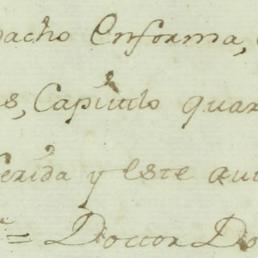 pacho Enforma,
s, Capitulo quar
erida y este au
= Doctor Do